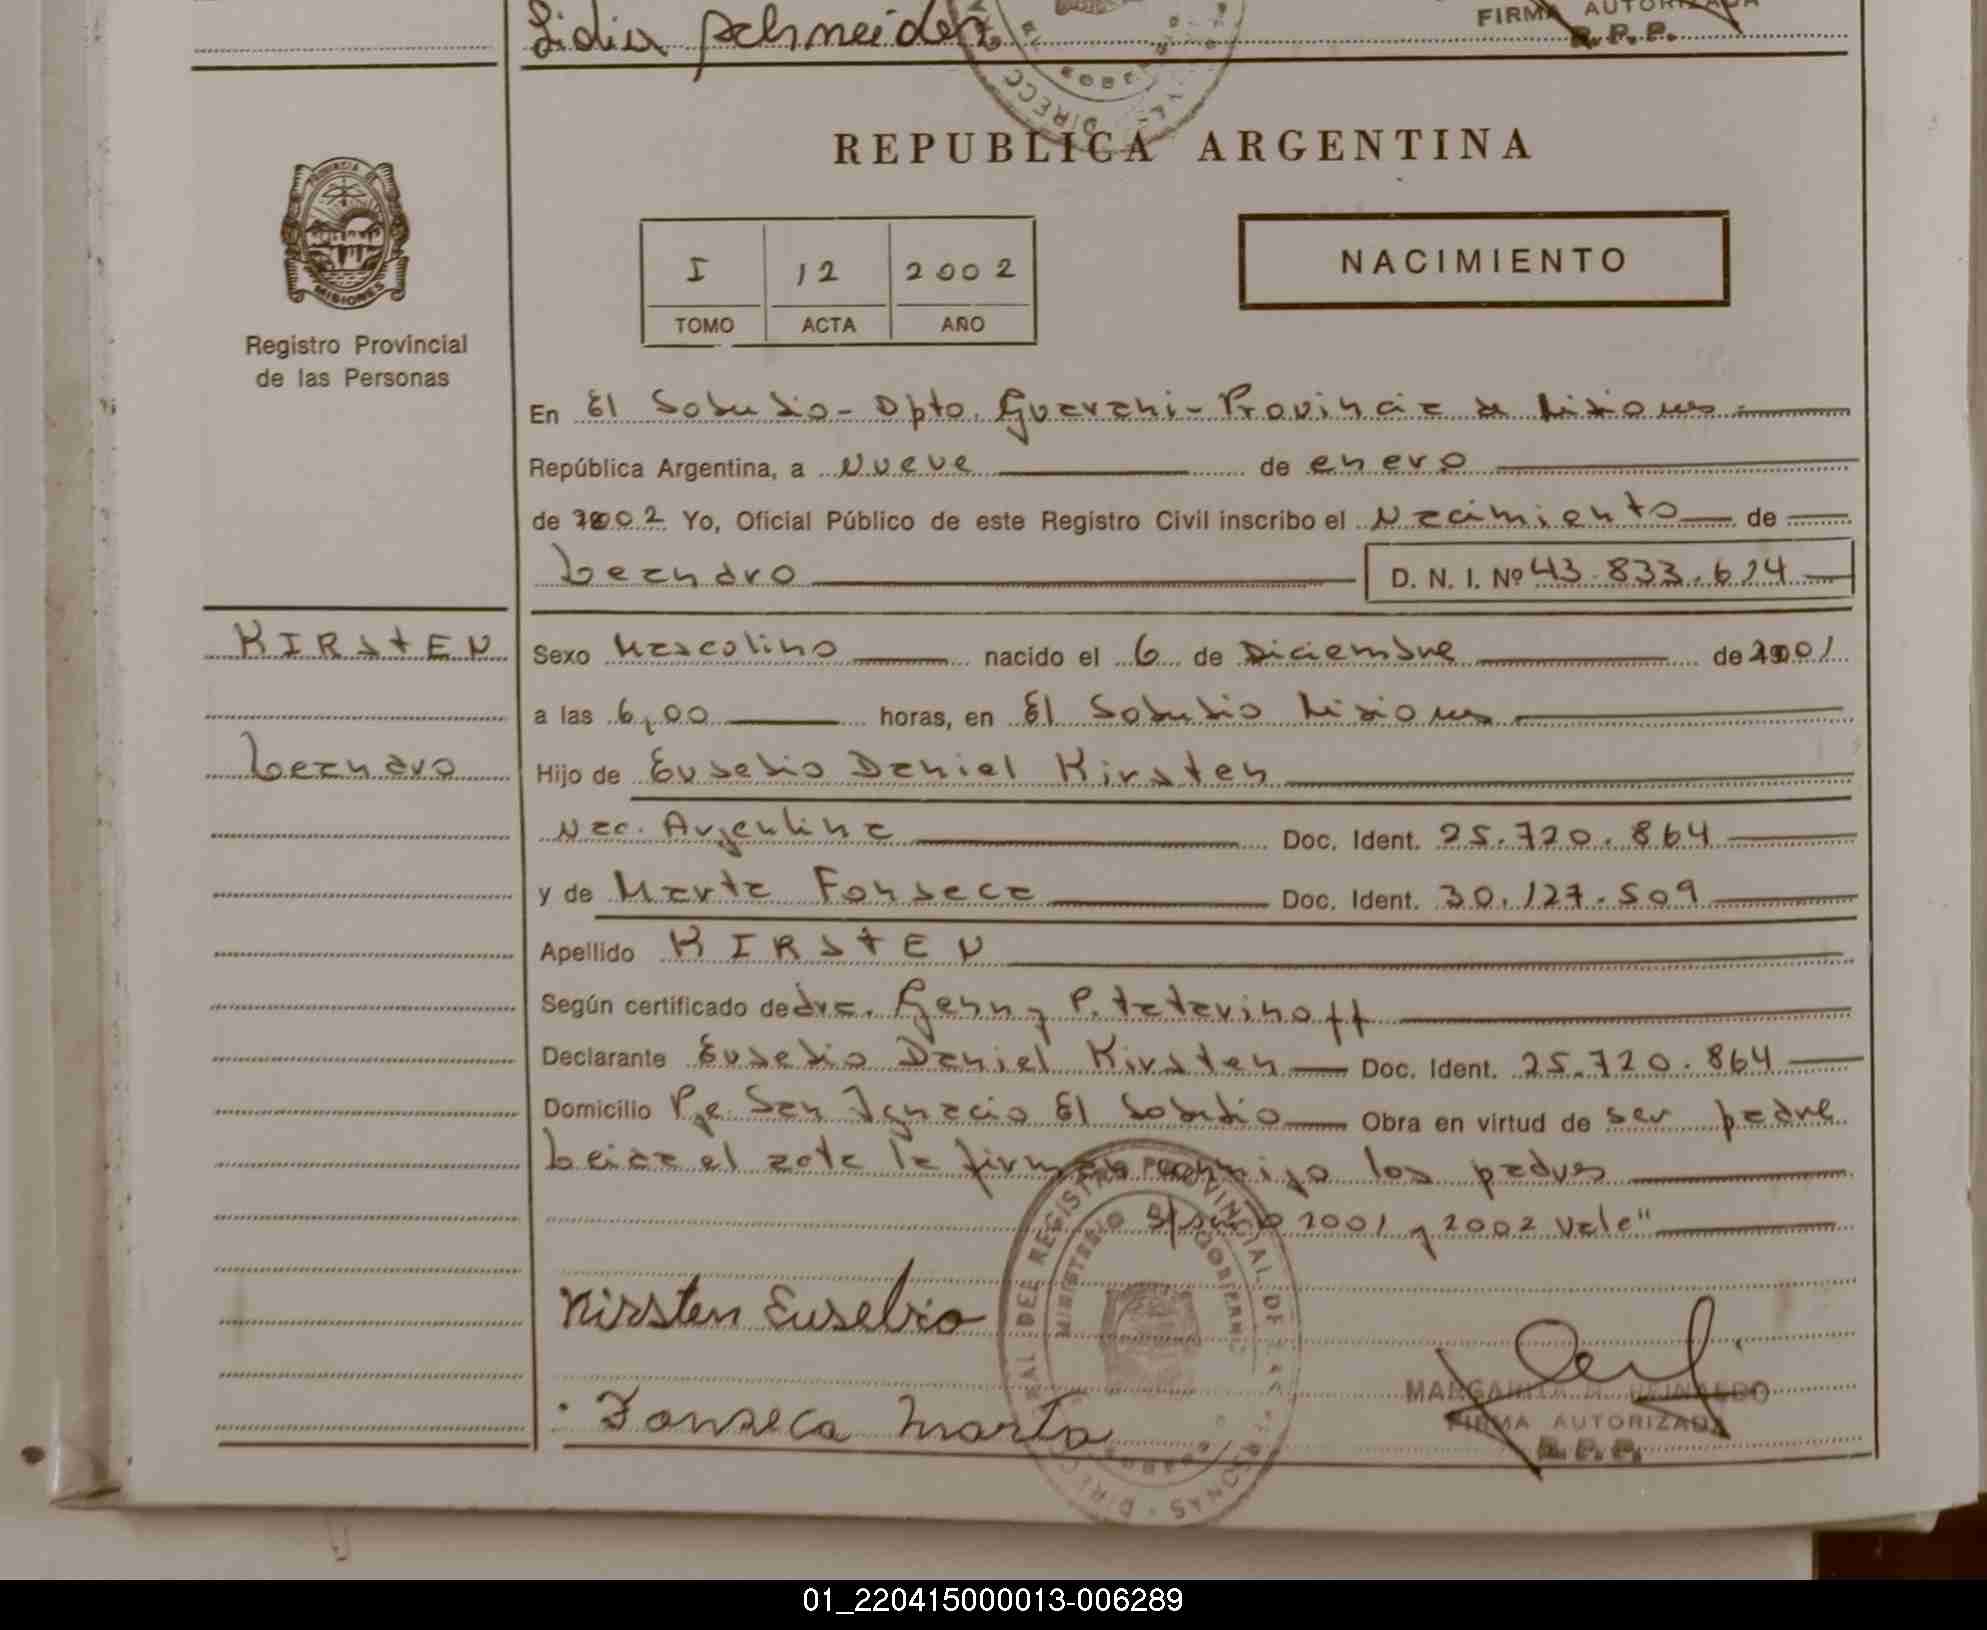 Lidia Schneider
FIRMA AUTORIZADA
R. P. P.
REPUBLICA ARGENTINA
PROVINCIA DE
MISIONES
Registro Provincial
de las Personas
I 12 2002
TOMO ACTA AÑO
NACIMIENTO
En El Soberbio - Dpto. Guarani - Provincia de Misiones
República Argentina, a Nueve de enero
de 2002 Yo, Oficial Público de este Registro Civil inscribo el Nacimiento de
Leandro D. N. I. Nº 43.833.614
KIRSTEN
Leandro
Sexo Masculino nacido el 6 de Diciembre de 2001
a las 6,00 horas, en El Soberbio Misiones
Hijo de Eusebio Daniel Kirsten
Nac. Argentina Doc. Ident. 25.720.864
y de Marta Fonseca Doc. Ident. 30.127.509
Apellido KIRSTEN
Según certificado de dra. Genny P. Tatarinoff
Declarante Eusebio Daniel Kirsten Doc. Ident. 25.720.864
Domicilio Pje. San Ignacio El Soberbio Obra en virtud de ser padre
Leida el acta la firman conmigo los padres
2001 y 2002 Vale"
Kirsten Eusebio
Fonseca Marta
MARGARITA R. REINALDO
FIRMA AUTORIZADA
R. P. P.
01_220415000013-006289